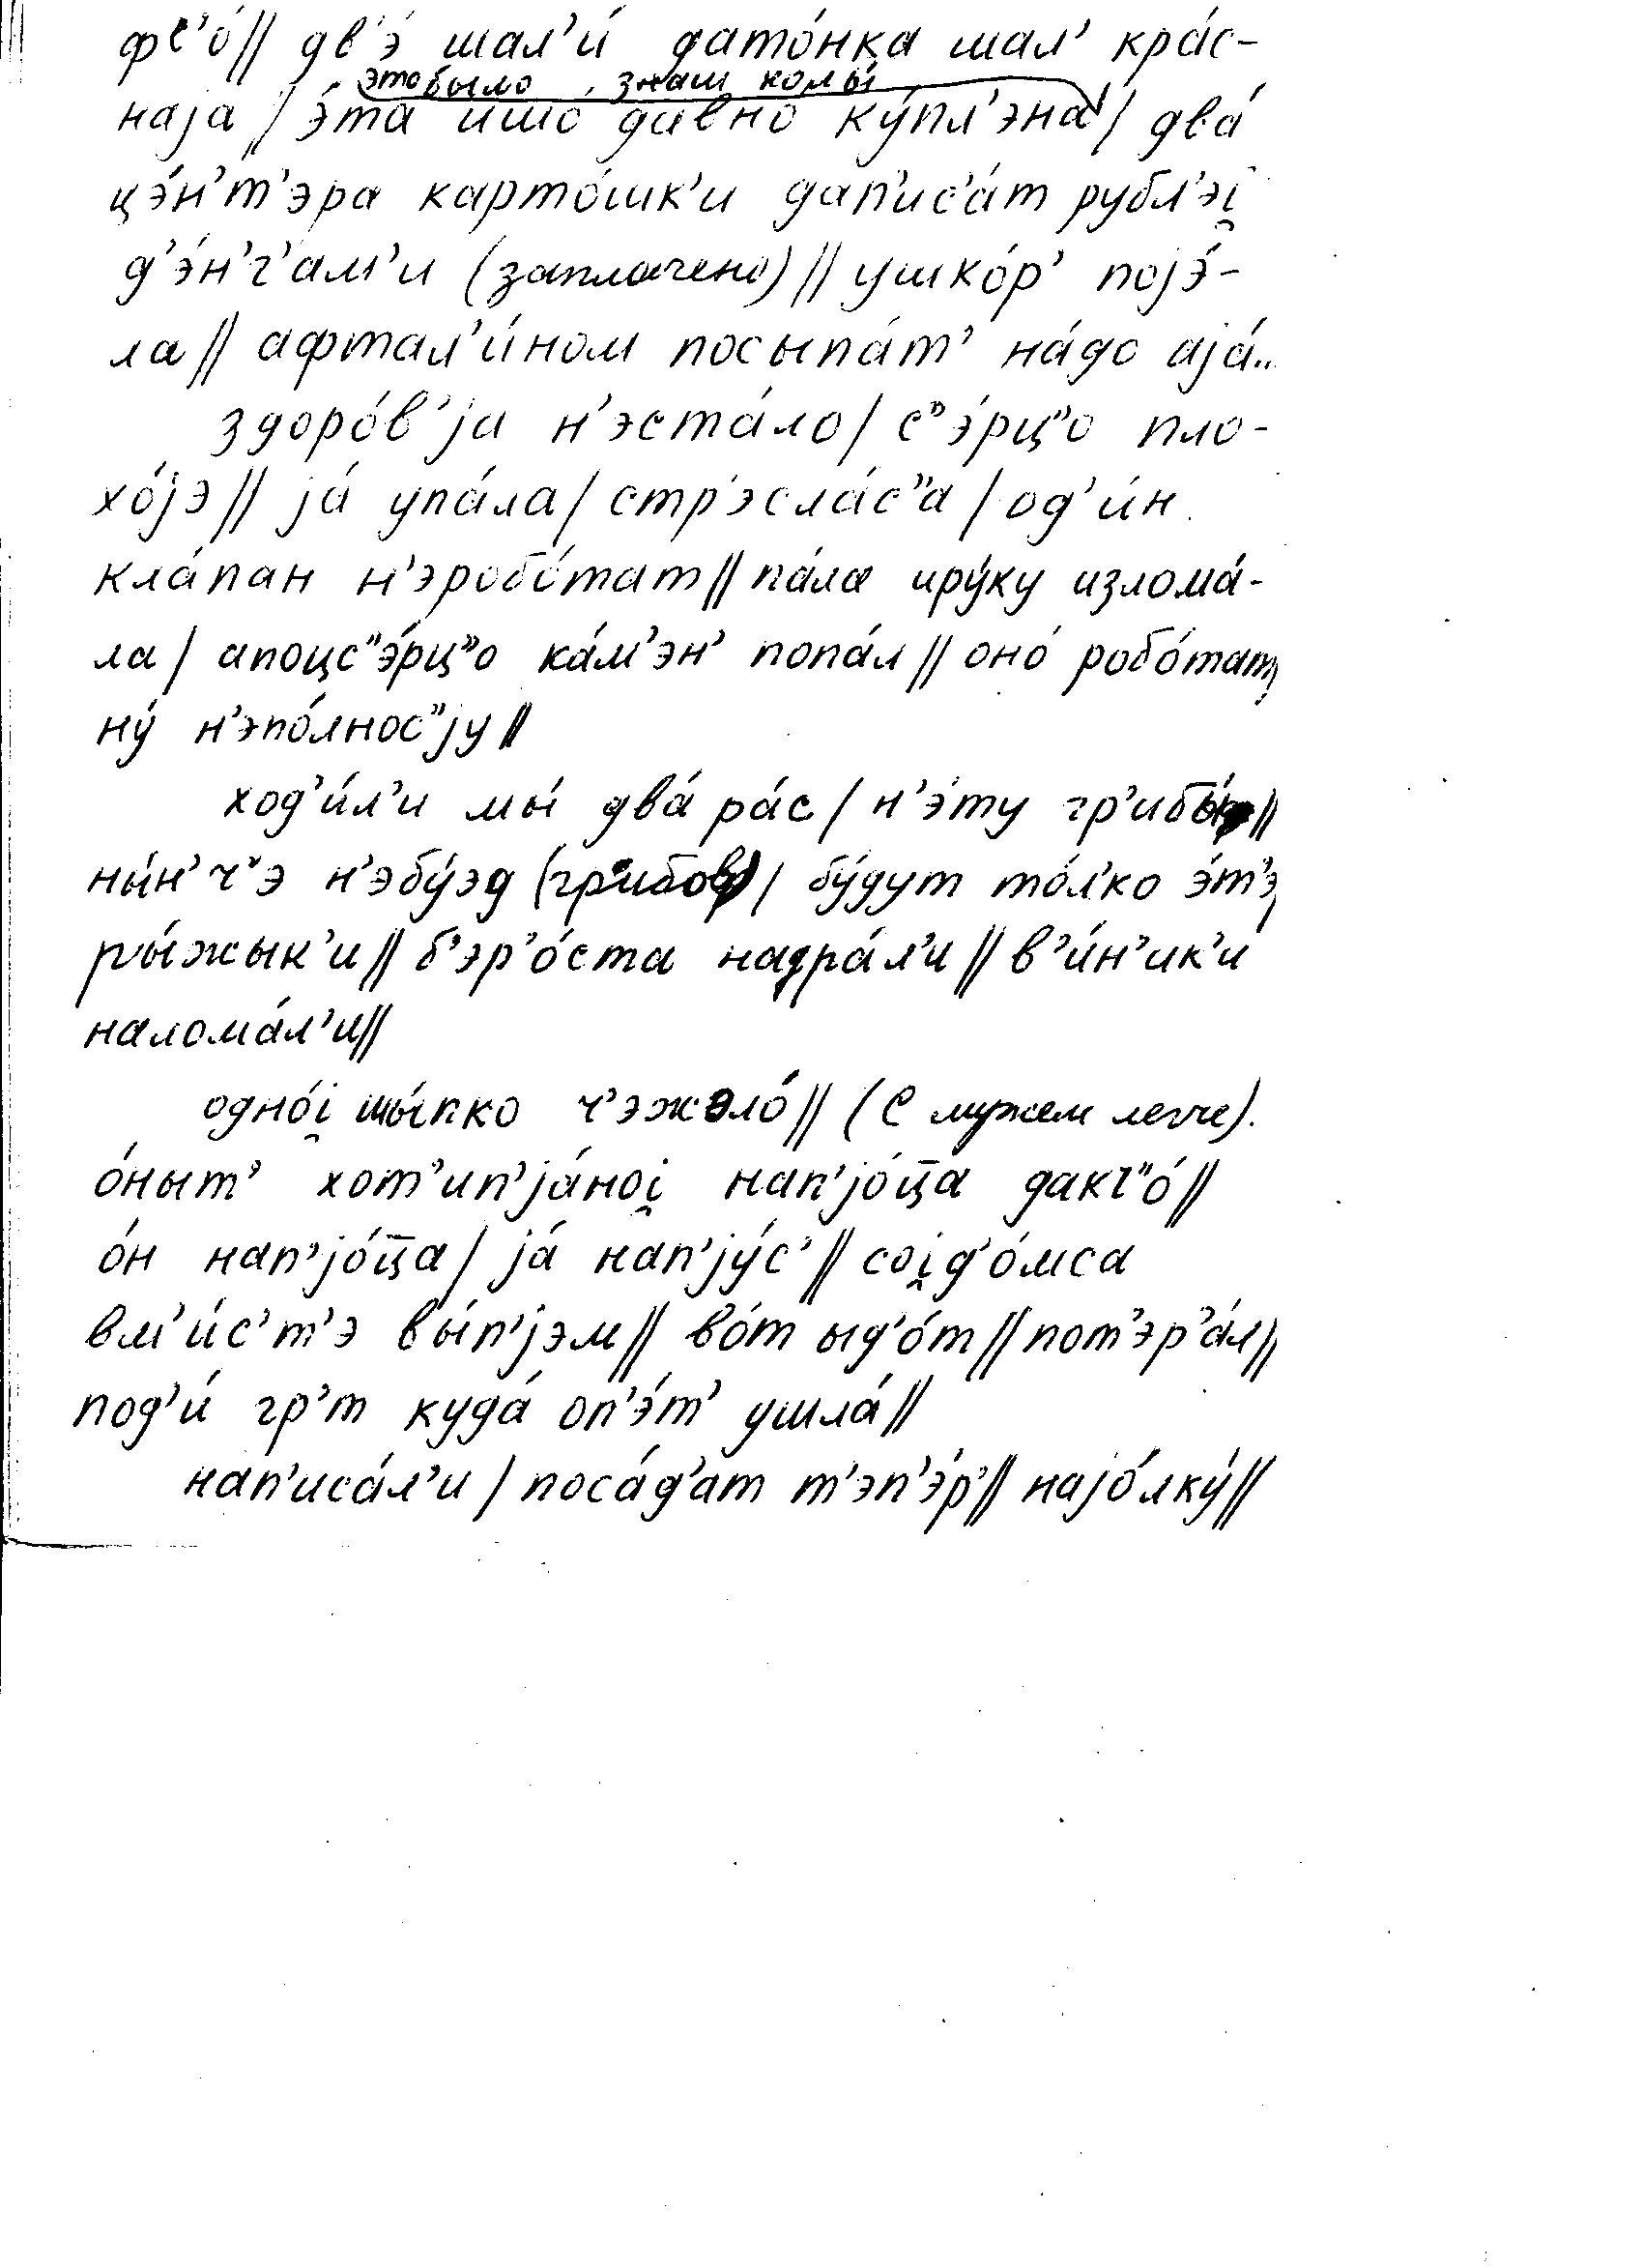 фс'о́ // дв'э́ шал'и́ дато́нка шал' кра́с-
это было, знаш колы́
наjа / э́та ишо́ давно́ ку́пл'эна / два́
цэ́н'т'эра карто́шк'и дап'ис'а́т рубл'эi̯
д'э́н'г'ам'и (заплачено) // ушко́р' поjэ́-
ла // афтал'и́ном посыпа́т' на́до аjа́..
здоро́в'jа н'эста́ло / с"э́рц"о пло-
хо́jэ // jа́ упа́ла / стр'эсла́с"а / од'и́н
кла́пан н'эробо́тат // па́ла иру́ку излома́-
ла / апоцс"э́рц"о ка́м'эн' попа́л // оно́ робо́тат,
ну́ н'эпо́лнос"jу //
ход'и́л'и мы́ два́ ра́с / н'э́ту гр'ибы́ //
ны́н'ч'э н'эбу́эд (грибов) / бу́дут то́л'ко э́т'э
ры́жык'и // б'эр'о́ста надра́л'и // в'и́н'ик'и
налома́л'и //
одно́i̯ шы́пко ч'эжэло́ // (С мужем легче).
о́ныт' хот'ип'jа́ноi̯ нап'jо́ц̄а дакч"о́ //
о́н нап'jо́ц̄а / jа́ нап'jу́с' // соi̯д'о́мса
вм'и́с'т'э вы́п'jэм // во́т ыд'о́т // пот'эр'а́л //
под'и́ гр'т куда́ оп'э́т' ушла́ //
нап'иса́л'и / поса́д'ат т'эп'э́р' // наjо́лку́ //